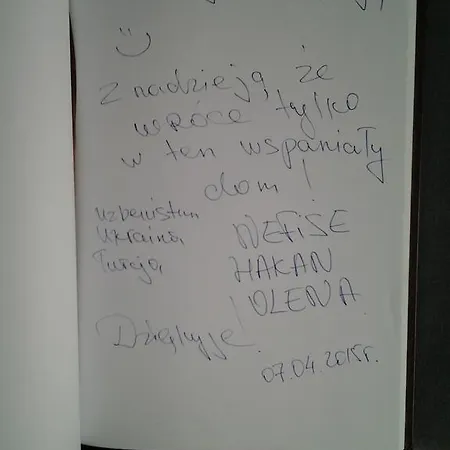 Z nadzieją, że
wrócę tylko
w ten wspaniały
dom!
Uzbekistan
Ukraina NEFISE
Turcja HAKAN
! OLENA
Dziękuje
07.04.2015r.